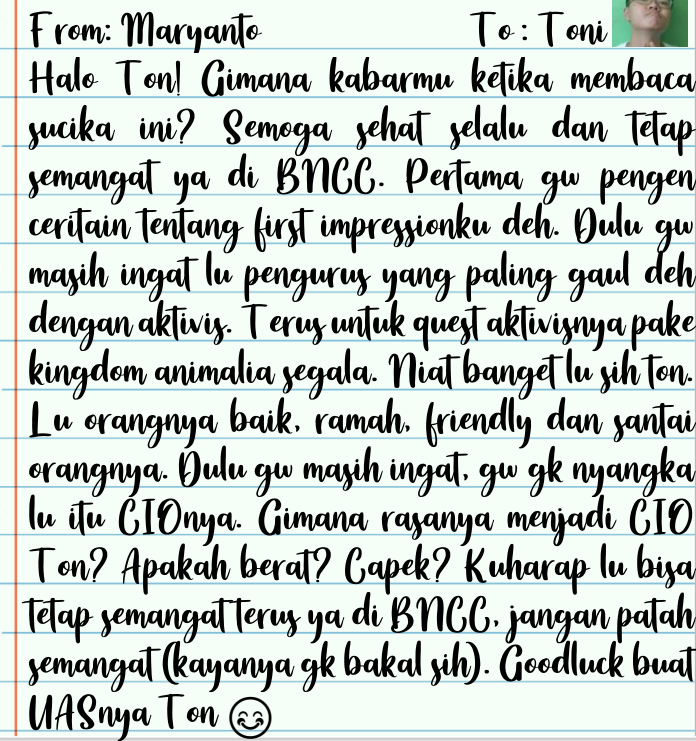 From: Maryanto To: Toni
Halo Ton! Gimana kabarmu ketika membaca
sucika ini? Semoga sehat selalu dan tetap
semangat ya di BNCC. Pertama gw pengen
ceritain tentang first impressionku deh. Dulu gw
masih ingat lu pengurus yang paling gaul deh
dengan aktivis. Terus untuk quest aktivisnya pake
kingdom animalia segala. Niat banget lu sih ton.
Lu orangnya baik, ramah, friendly dan santai
orangnya. Dulu gw masih ingat, gw gk nyangka
lu itu CIOnya. Gimana rasanya menjadi CIO
Ton? Apakah berat? Capek? Kuharap lu bisa
tetap semangat terus ya di BNCC, jangan patah
semangat (kayanya gk bakal sih). Goodluck buat
UASnya Ton 😊